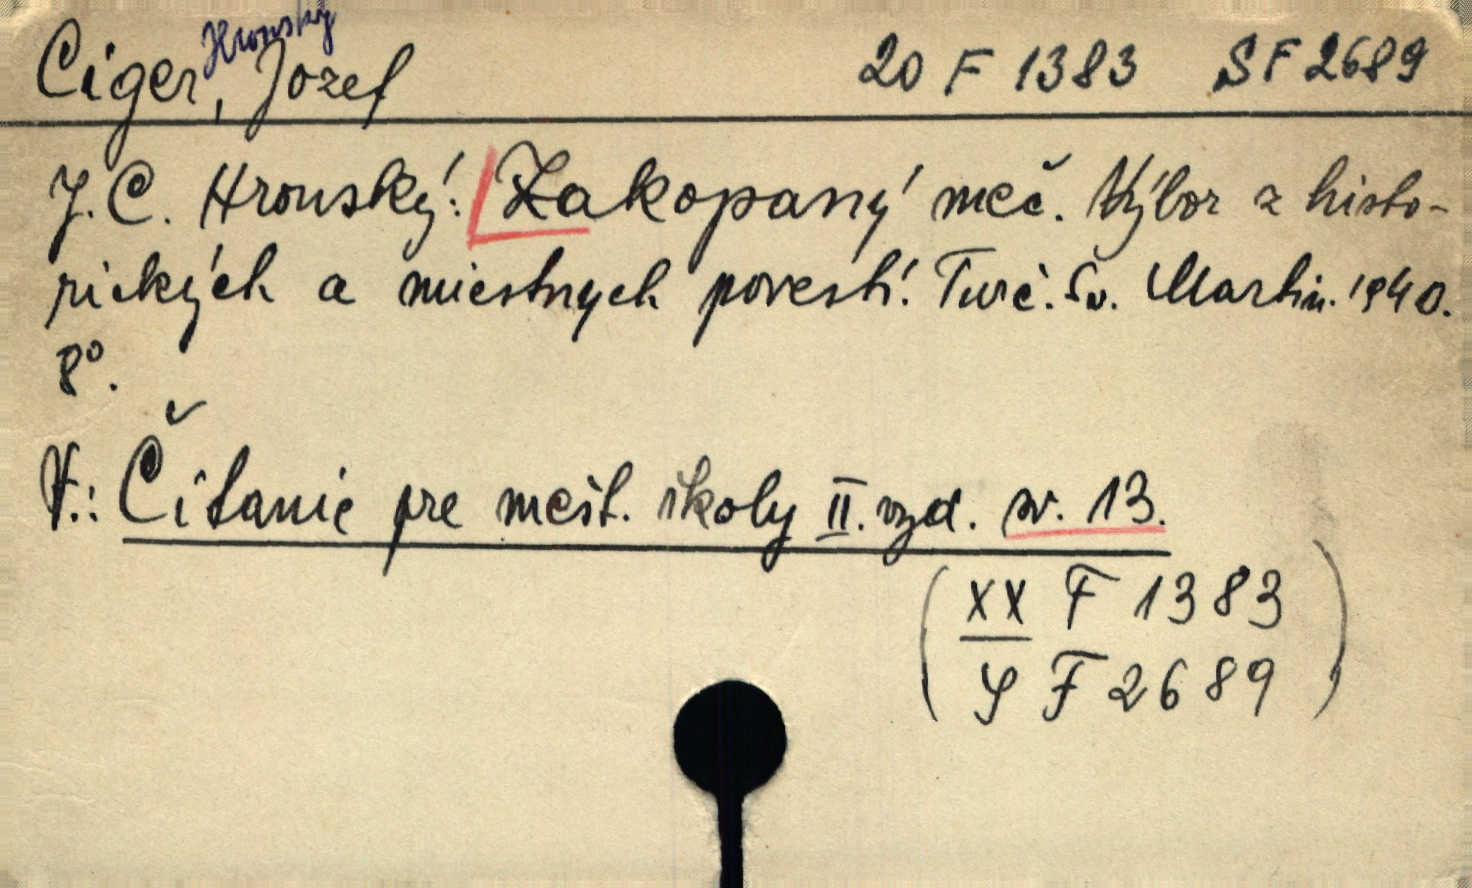 Ciger Hronský, Jozef 20 F 1383 SF 2689
J. C. Hronský: Zakopaný meč. Výbor z histo-
rických a miestnych povestí. Turč. Sv. Martin. 1940.
8°.
V.: Čítanie pre mešt. školy II. vyd. sv. 13.
(XX F 1383
S F 2689)